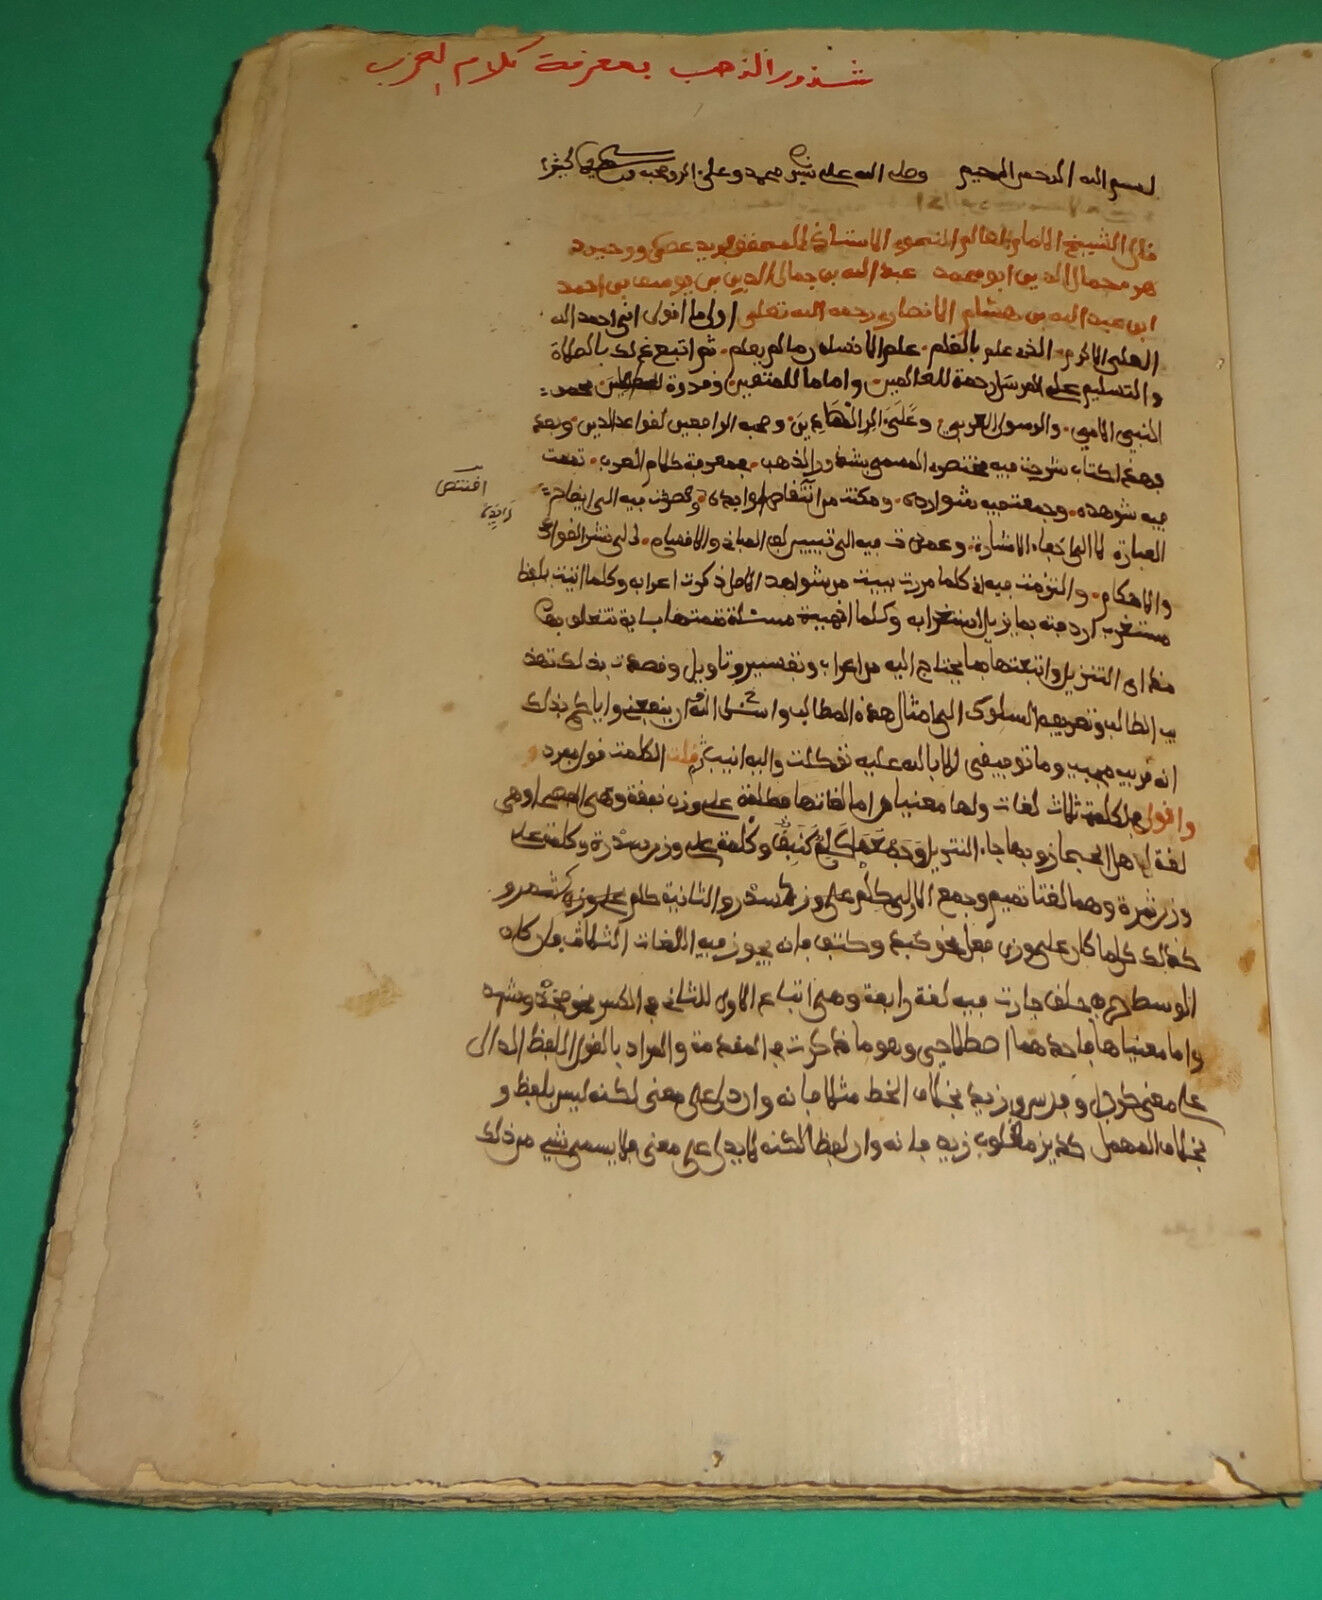 شذور الذهب بمعرفة كلام العرب
بسم الله الرحمن الرحيم وصلى الله على محمد وعلى اله وصحبه
قال الشيخ الامام العالم النحوي الاستاذ المحقق فريد عصره ووحيد
هو جمال الدين ابو محمد عبد الله بن جمال الدين بن يوسف بن احمد
ابن عبد الله بن هشام الانصاري رحمه الله تعلى اول ما اقول اني احمد الله
العلي الاكرم الذي علم بالقلم علم الانسان ما لم يعلم ثم اتبع ذلك بالصلاة
والتسليم على المرسل رحمة للعالمين واماما للمتقين وقدوة للعاملين محمد
النبي الامي والرسول العربي وعلى اله الهادين وصحبه الرافعين لقواعد الدين وبعد
فهذا كتاب شرحت فيه مختصري المسمى بشذور الذهب بمعرفة كلام العرب تممت
فيه شواهده وجمعت فيه شوارده ومكنت من اقتناص اوابده وقصدت فيه الى ايضاح
اقتنص
زايدة
العبارة لا الى خفاء الاشارة وعمدت فيه الى المباني والاقسام لا الى نشر القواعد
والاحكام والتزمت فيه اني كلما مررت ببيت من شواهد الاصل ذكرت اعرابه وكلما اتيت بلفظ
مستغرب اردفته بما يزيل استغرابه وكلما انهيت مسئلة ختمتها باية تتعلق بها
من اي التنزيل واتبعتها بما يحتاج اليه من اعراب وتفسير وتاويل وقصدت بذلك تهذ
يب الطالب وتعريفه السلوك الى امثال هذه المطالب واسئل الله ان ينفعني واياكم بذلك
انه قريب مجيب وما توفيقي الا بالله عليه توكلت واليه انيب ثم قلت الكلمة قول مفرد
واقول في الكلمة ثلاث لغات ولها معنيان اما لغاتها فكلمة على وزن نبقة وهي الفصحى وهي
لغة اهل الحجاز وبها جاء التنزيل وكلمة على وزن سدرة وكلمة على
وزن تمرة وهما لغتا تميم وجمع الاولى كلم على وزن كسدر والثانية كلم على وزن كتمر و
كذلك كل ما كان على وزن فعل نحو كبد وكتف فانه يجوز فيه اللغات الثلاث فان كان
الوسط حرف حلق جازت فيه لغة رابعة وهي اتباع الاول للثاني في الكسر نحو فخذ وشهد
واما معنياها فاحدهما اصطلاحي وهو ما ذكرت في المقدمة والمراد بالقول اللفظ الدال
على معنى كرجل وفرس وزيد بخلاف الخط مثلا فانه وان دل على معنى لكنه ليس بلفظ و
بخلاف المهمل كديز مقلوب زيد فانه وان لفظا لكنه لا يدل على معنى فلا يسمى شيء من ذلك